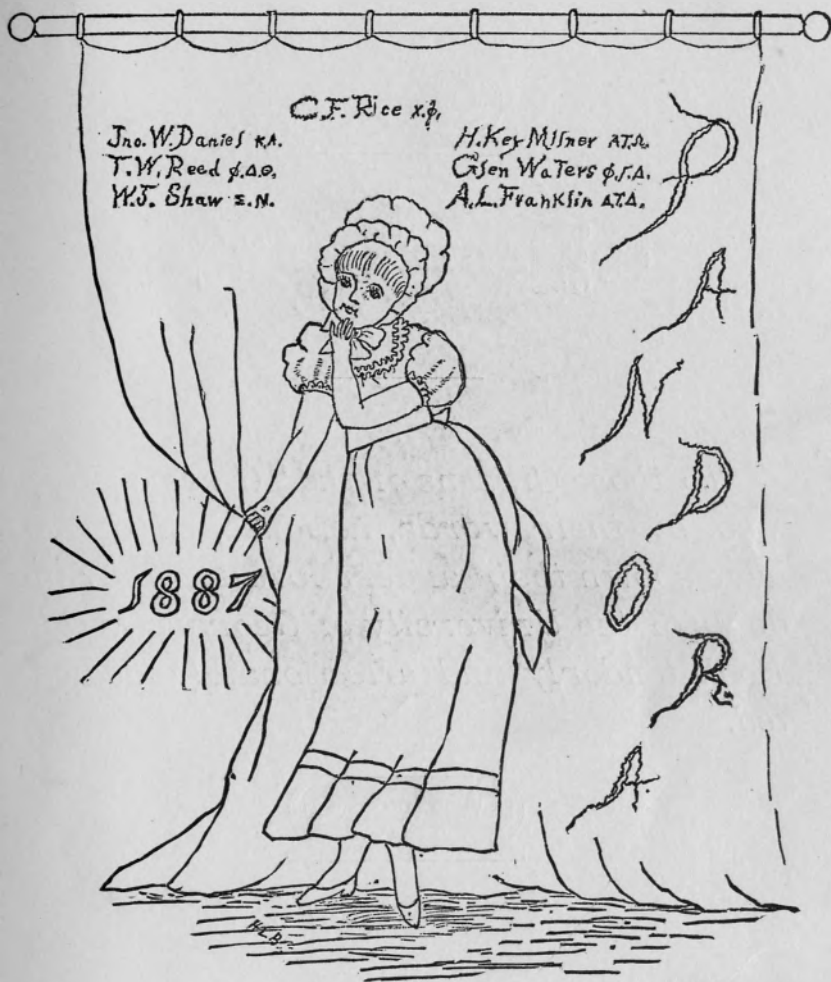 C. F. Rice Χ.Φ.
Jno. W. Daniel K.A.
T. W. Reed Φ.Δ.Θ.
W. J. Shaw Σ.N.
H. Key Milner A.T.Ω.
Glen Waters Φ.Γ.Δ.
A. L. Franklin Δ.T.Δ.
PANDORA
1887